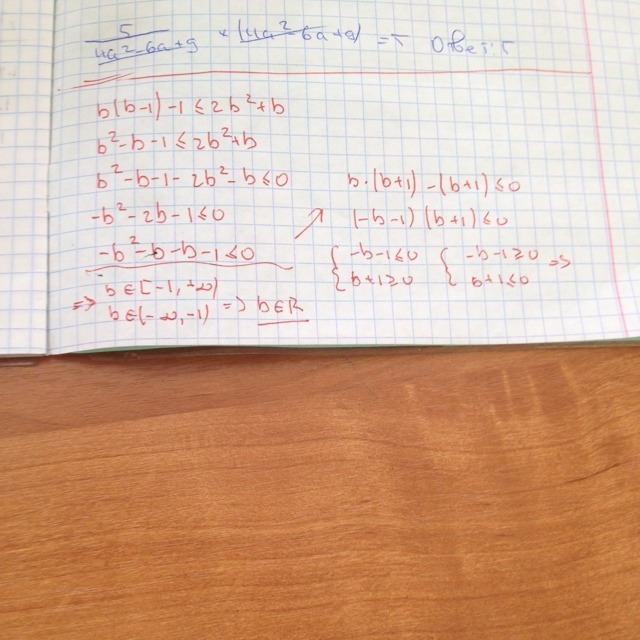 5/(4a²-6a+9) * (4a²-6a+9) = 5 Ответ: 5
b(b-1)-1≤2b²+b
b²-b-1≤2b²+b
b²-b-1-2b²-b≤0
-b²-2b-1≤0
-b²-b-b-1≤0
b·(b+1)-(b+1)≤0
(-b-1)(b+1)≤0
{-b-1≤0 {-b-1≥0 =>
{b+1≥0 {b+1≤0
=> b∈[-1,+∞)
b∈(-∞,-1) => b∈R